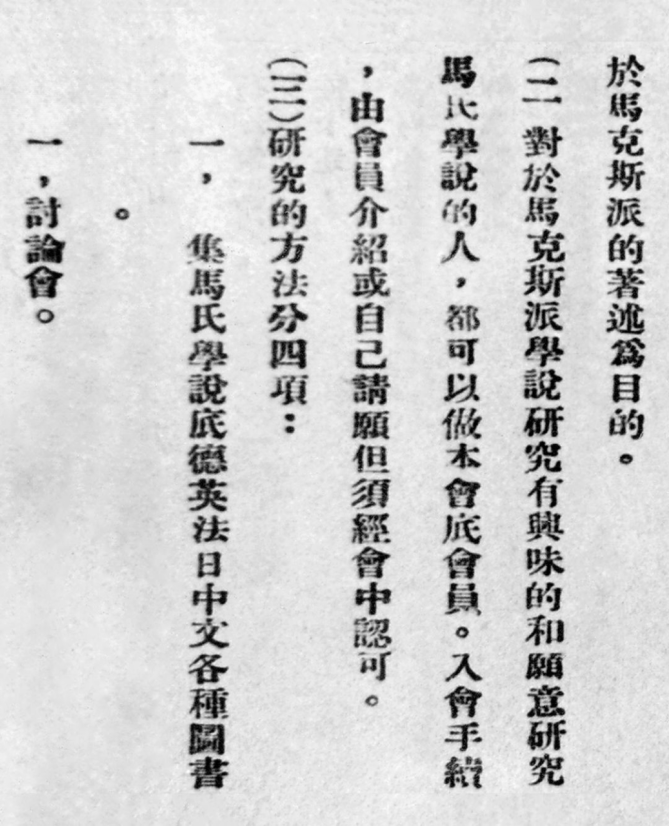 於馬克斯派的著述爲目的。
(二 對於馬克斯派學說研究有興味的和願意研究
馬氏學說的人，都可以做本會底會員。入會手續
，由會員介紹或自己請願但須經會中認可。
(三)研究的方法分四項：
一，集馬氏學說底德英法日中文各種圖書
。
一，討論會。